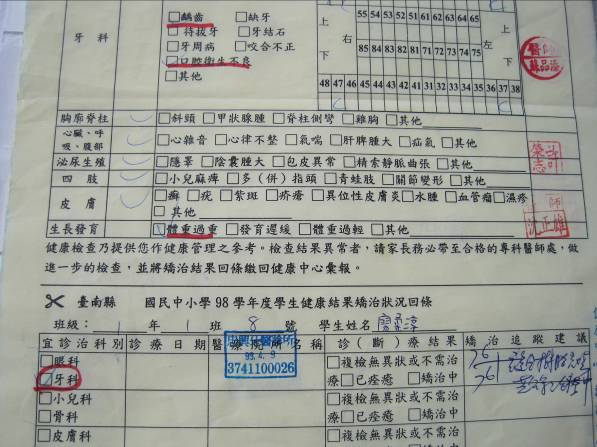 □齲齒 □缺牙
牙科 □待拔牙 □牙結石
□牙周病 □咬合不正
□口腔衛生不良
□其他
上 右 下
55 54 53 52 51 61 62 63 64 65
85 84 83 82 81 71 72 73 74 75
上 左 下
48 47 46 45 44 43 42 41 31 32 33 34 35 36 37 38
胸廓脊柱 □斜頸 □甲狀腺腫 □脊柱側彎 □雞胸 □其他
心臟、呼吸、腹部 □心雜音 □心律不整 □氣喘 □肝脾腫大 □疝氣 □其他
泌尿生殖 □隱睪 □陰囊腫大 □包皮異常 □精索靜脈曲張 □其他
四肢 □小兒麻痺 □多(併)指頭 □青蛙肢 □關節變形 □其他
皮膚 □癬 □疣 □紫斑 □疥瘡 □異位性皮膚炎 □水腫 □血管瘤 □濕疹
□其他
生長發育 □體重過重 □發育遲緩 □體重過輕 □其他
健康檢查乃提供您作健康管理之參考。檢查結果異常者,請家長務必帶至合格的專科醫師處,做
進一步的檢查,並將矯治結果回條繳回健康中心彙報。
臺南縣 國民中小學98學年度學生健康結果矯治狀況回條
班級: 1 年 1 班 8 號 學生姓名
宜診治科別 診療日期 醫療院所名稱 診(斷)療結果 矯治追蹤建議
□眼科 □複檢無異狀或不需治
□牙科 療 □已痊癒 □矯治中
□小兒科 □複檢無異狀或不需治
□骨科 療 □已痊癒 □矯治中
□皮膚科 □複檢無異狀或不需治
3741100026
沈正雄